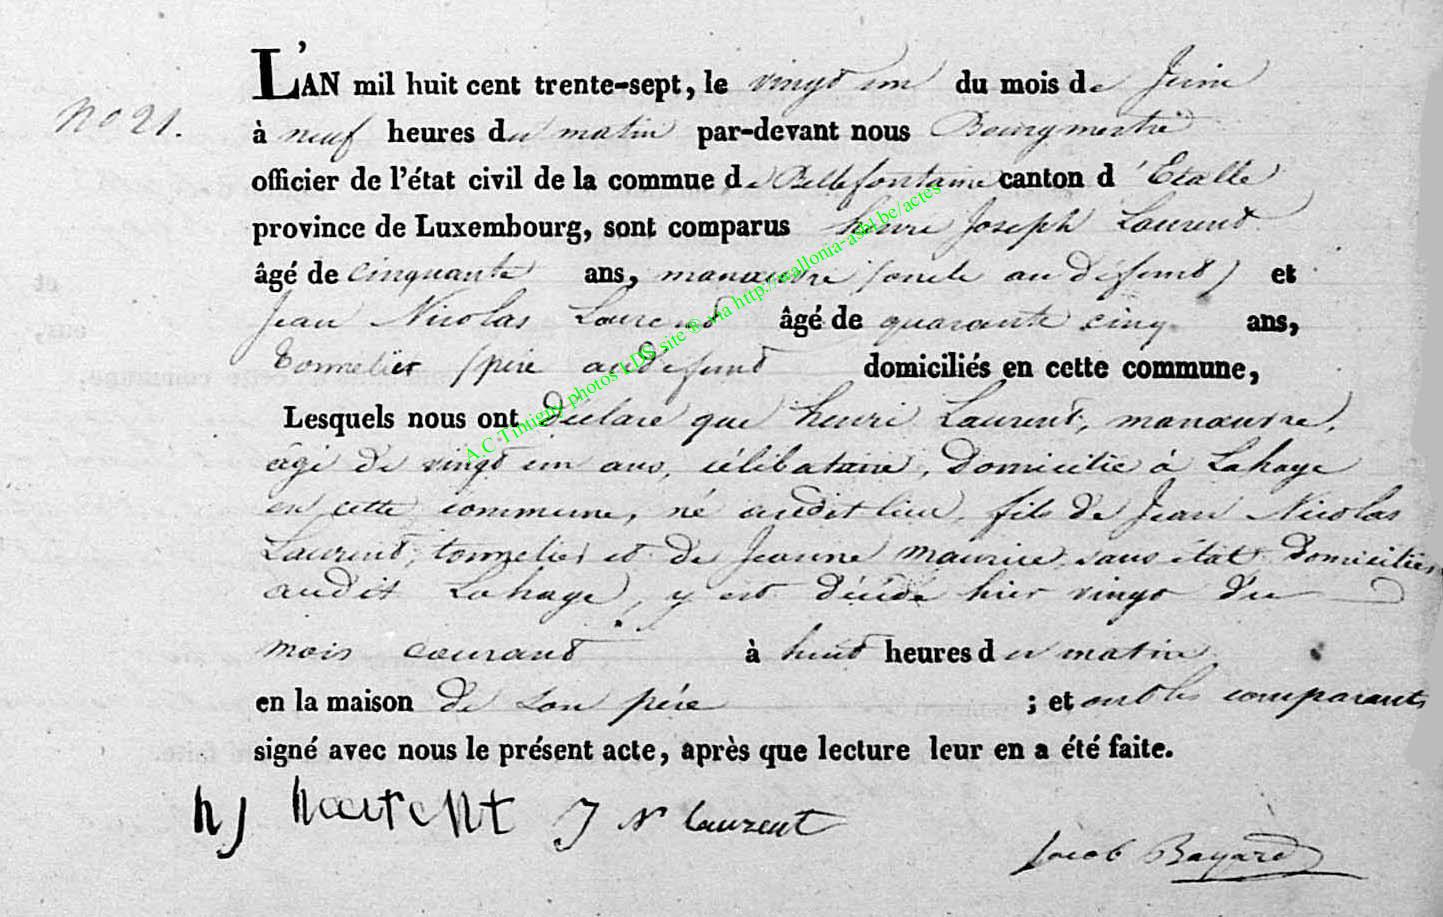 No 21.
L'AN mil huit cent trente-sept, le vingt un du mois de Juin
à neuf heures du matin par-devant nous Bourgmestre
officier de l'état civil de la commue de Bellefontaine canton d'Etalle
province de Luxembourg, sont comparus henri Joseph Laurent
âgé de cinquante ans, manœuvre (oncle au défunt) et
Jean Nicolas Laurent âgé de quarante cinq ans,
tonnelier (père au défunt domiciliés en cette commune,
Lesquels nous ont déclaré que henri Laurent, manœuvre,
agé de vingt un ans, célibataire, domicilié à Lahage
en cette commune, né audit lieu, fils de Jean Nicolas
Laurent, tonnelier et de Jeanne maurice sans état, domiciliés
audit Lahage, y est décédé hier vingt du
mois courant à huit heures du matin
en la maison de son père ; et ont les comparants
signé avec nous le présent acte, après que lecture leur en a été faite.
h j Laurent J N laurent
Jacob Bayard
A.C Tintigny photos LDS site ® via http://wallonia-asbl.be/actes